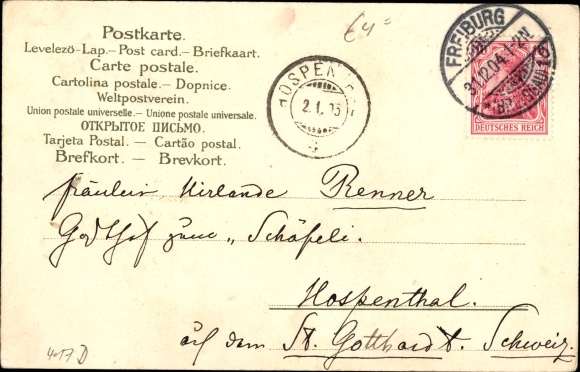 Postkarte.
Levelezö-Lap. — Post card. — Briefkaart.
Carte postale.
Cartolina postale. — Dopnice.
Weltpostverein.
Union postale universelle. — Unione postale universale.
ОТКРЫТОЕ ПИСЬМО.
Tarjeta Postal. — Cartão postal.
Brefkort. — Brevkort.
HOSPEN
2.1.05
FREIBURG
31.12.04.1-2N.
DEUTSCHES REICH
Fräulein Renner
Gasthof zum „Schäfli.
Hospenthal.
auf dem St. Gotthardt. Schweiz.
4017 D